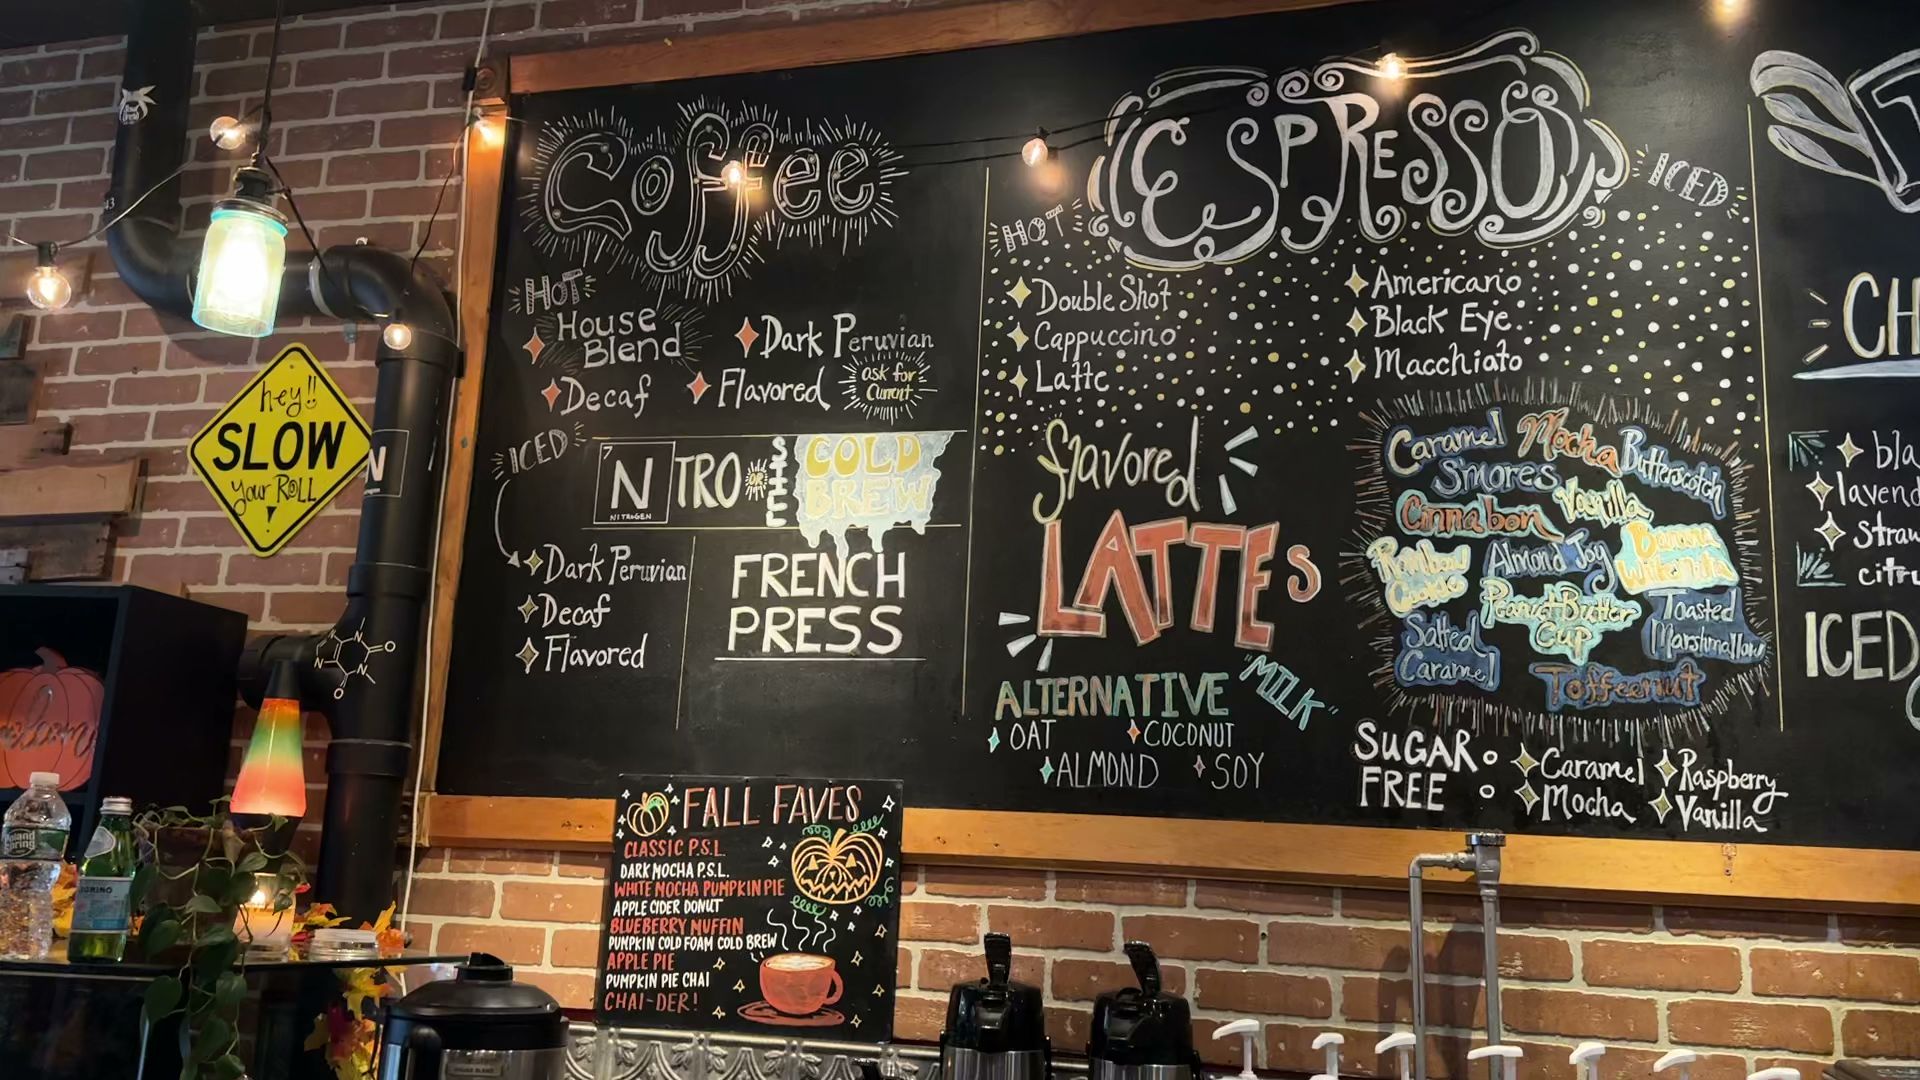 Coffee
HOT
House Blend
Dark Peruvian
Decaf
Flavored
ask for
Current
ICED
7
N
NITROGEN
NTRO
OR
STILL
COLD
BREW
Dark Peruvian
Decaf
Flavored
FRENCH
PRESS
ESPRESSO
HOT
ICED
Double Shot
Cappuccino
Latte
Americano
Black Eye
Macchiato
flavored
LATTES
Caramel
Mocha
Butterscotch
S'mores
Vanilla
Cinnabon
Rainbow
Cookie
Almond Joy
Banana
Peanut Butter
Cup
Toasted
Marshmallow
Salted
Caramel
Toffeenut
ALTERNATIVE
"MILK"
OAT
COCONUT
ALMOND
SOY
SUGAR
FREE
Caramel
Raspberry
Mocha
Vanilla
CH
bla
lavend
straw
citru
ICED
FALL FAVES
CLASSIC P.S.L.
DARK MOCHA P.S.L.
WHITE MOCHA PUMPKIN PIE
APPLE CIDER DONUT
BLUEBERRY MUFFIN
PUMPKIN COLD FOAM COLD BREW
APPLE PIE
PUMPKIN PIE CHAI
CHAI-DER!
hey!!
SLOW
your ROLL
N
Poland
Spring